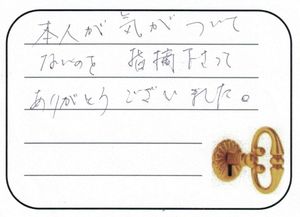 本人が気がついて
ないのを 指摘下さって
ありがとうございました。